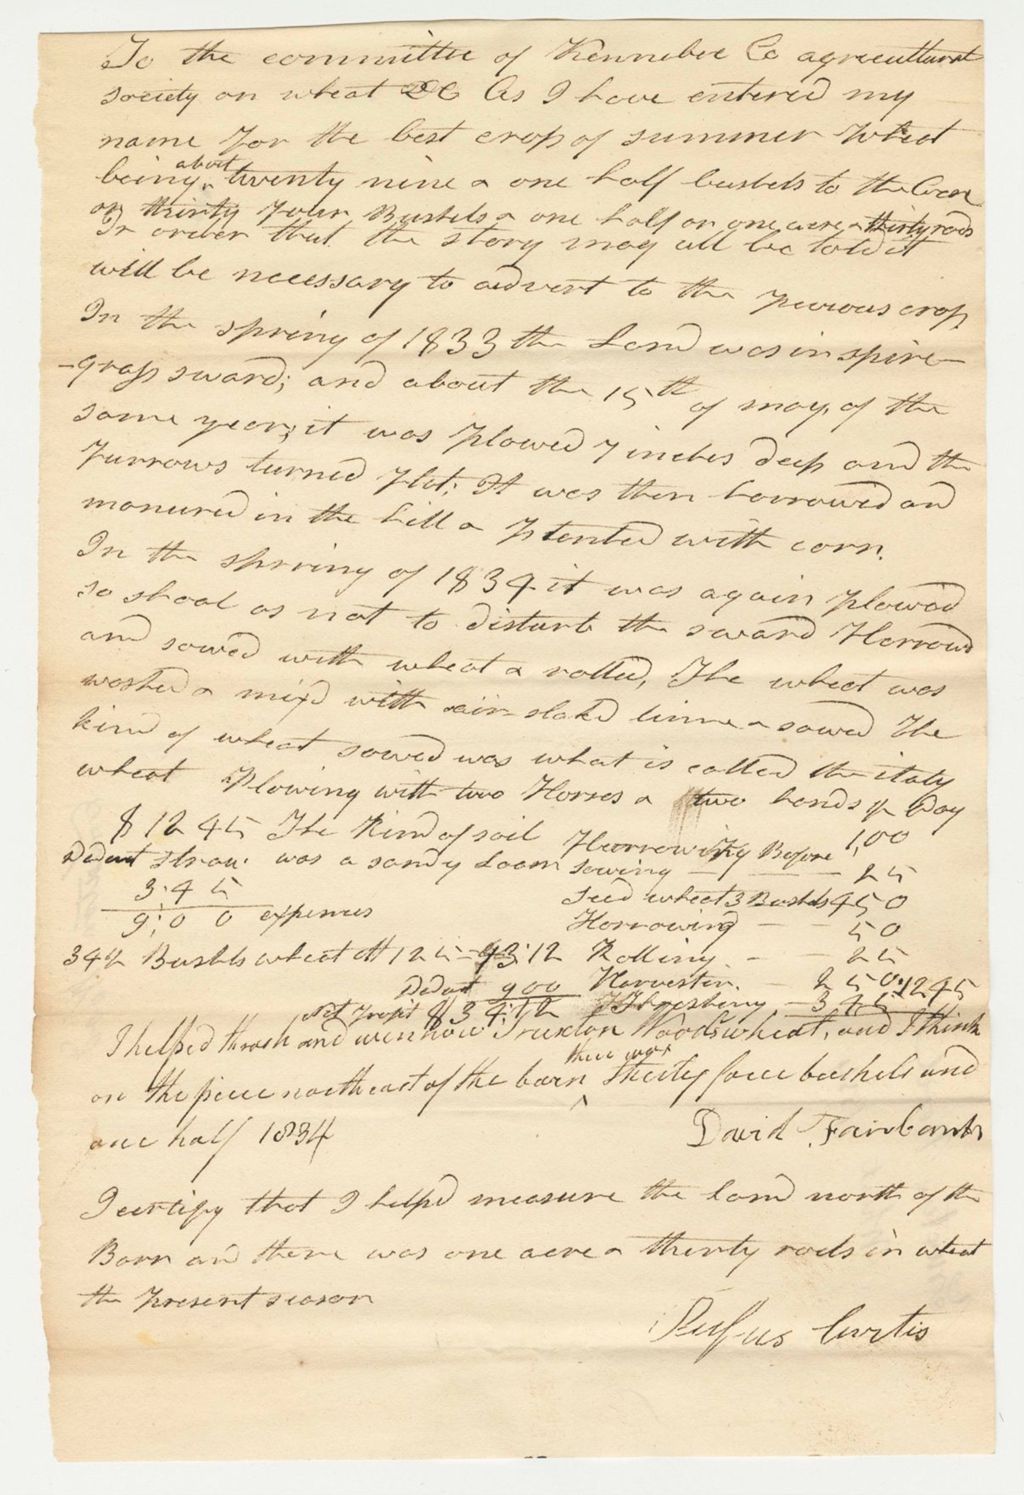 To the committee of Kennebec Co agricultural
society on wheat &C As I have entered my
name for the best crop of summer wheat
being about twenty nine & one half bushels to the Acre
or thirty four Bushels & one half on one acre & thirty rods
In order that the story may all be told it
will be necessary to advert to the previous crop
In the spring of 1833 the Land was in spire-
-grass sward; and about the 15th of may, of the
same year; it was plowed 7 inches deep and the
furrows turned flat; It was then harrowed and
manured in the hill & planted with corn.
In the spring of 1834 it was again plowed
so shoal as not to disturb the sward Harrowd
and sowed with wheat & rolled, The wheat was
washed & mixd with air slakd lime & sowed The
kind of wheat sowed was what is called the italy
wheat Plowing with two Horses & two hands pr Day
$ 12 45 The Kind of soil Harrowing Before 1,00
Deduct straw was a sandy Loam sowing — — 25
3.45 Seed wheat 3 Bushls 4 50
9:00 expenses Horrowing — — 50
34½ Bushls wheat att 125 = 43:12 Rolling — — 25
Deduct 9 00 Harvestin — 2 50 : 1245
Net Profit $ 34:12 Thresheng — 3 45
I helped thrash and winnow Truxton Woods wheat, and I think
on the piece northeast of the barn there was Thirty four bushels and
one half 1834 David Fairbanks
I certify that I helpd measure the land north of the
Barn and there was one acre & thirty rods in wheat
the present season
Rufus Curtis